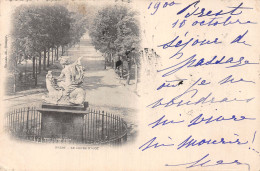 1900 Brest
10 octobre
séjour de
passage
où je ne
voudrais
ni vivre
ni mourir!
BREST - Le Cours d'Ajot